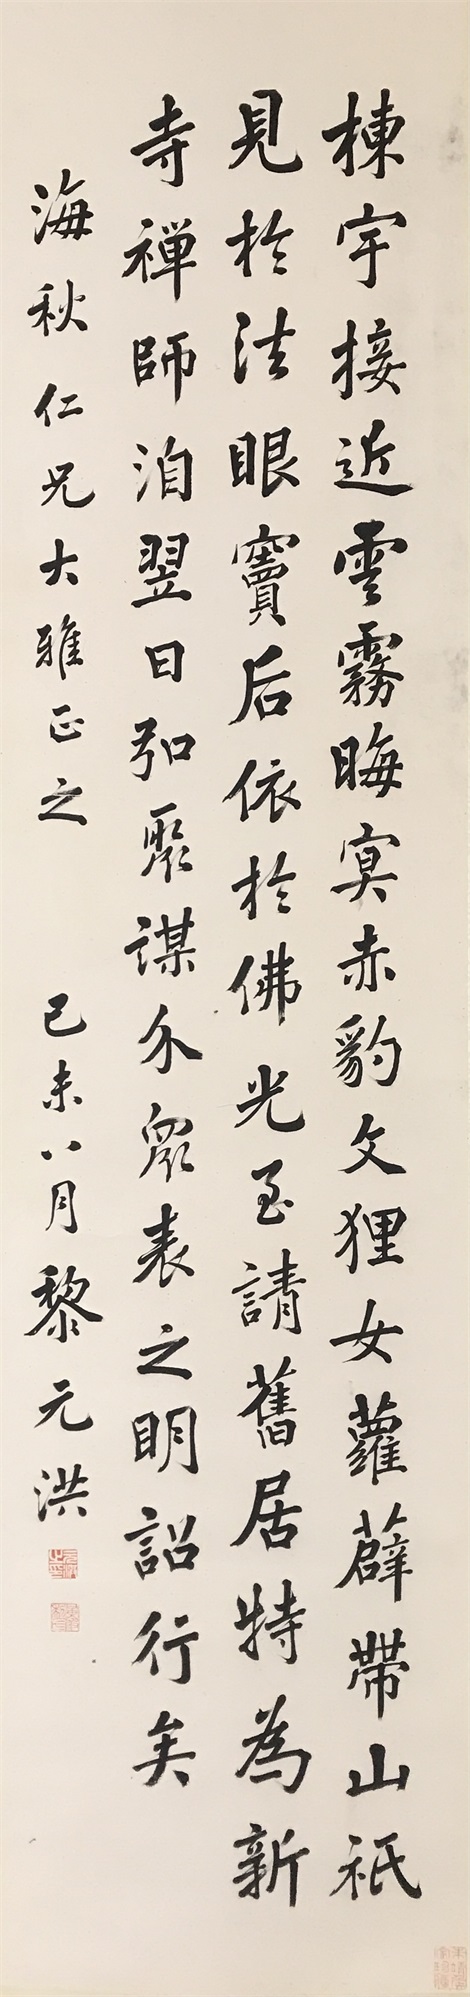 棟宇接近雲霧晦冥赤豹文狸女蘿薜帶山祇
見於法眼竇后依於佛光至請舊居特為新
寺禪師洎翌日弘聚謀介眾表之明詔行矣
海秋仁兄大雅正之 己未八月黎元洪